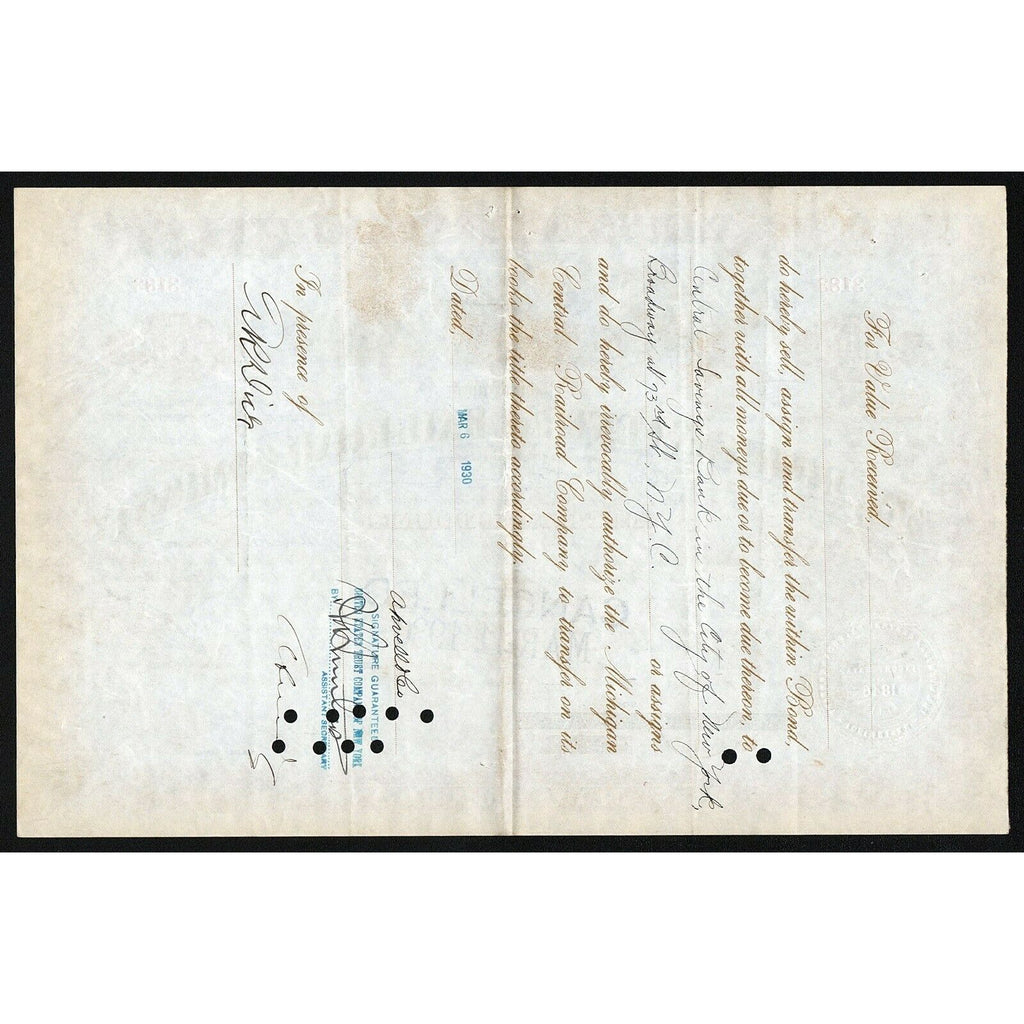 For Value Received,
do hereby sell, assign and transfer the within Bond,
together with all moneys due or to become due thereon, to
Central Savings Bank in the City of New York,
Broadway at 73rd St., N.Y.C. or assigns
and do hereby irrevocably authorize the Michigan
Central Railroad Company to transfer on its
books the title thereto accordingly.
Dated, MAR 6 1930
SIGNATURE GUARANTEED
TRUST COMPANY OF NEW YORK
BY
ASSISTANT SECRETARY
In presence of